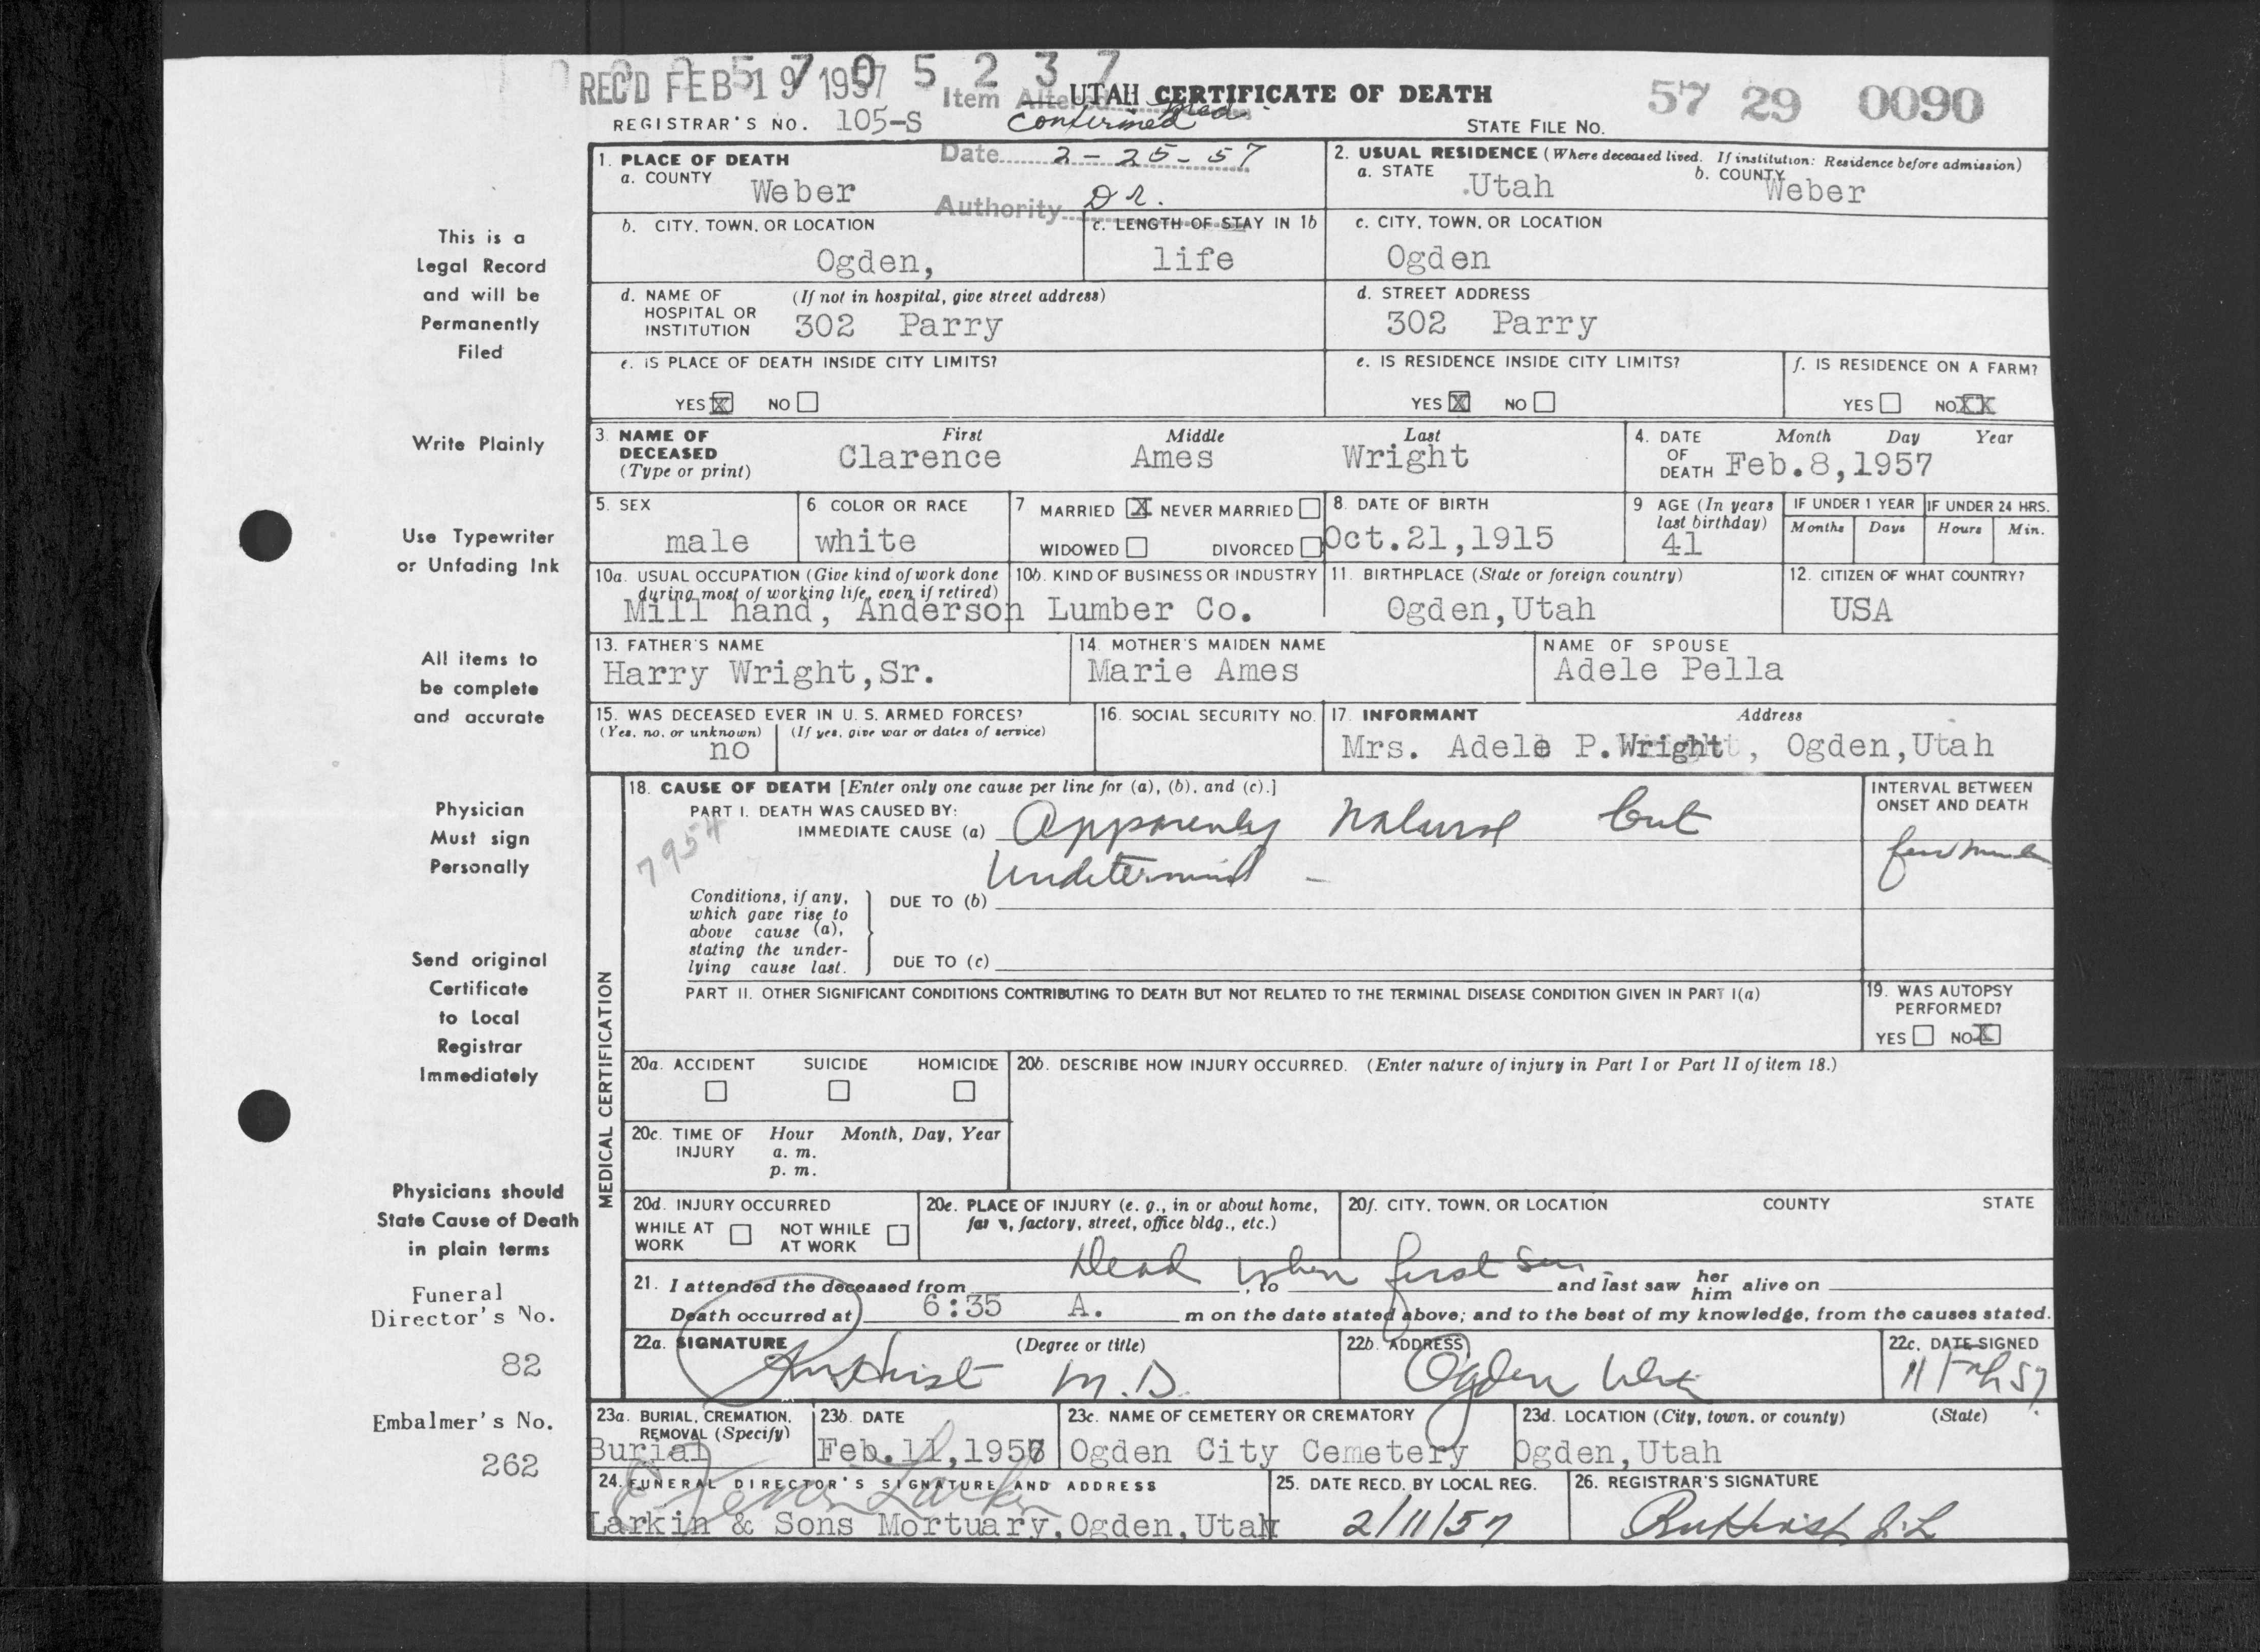 REC'D FEB 19 1957
5 7 0 5 2 3 7
Item Altered
UTAH CERTIFICATE OF DEATH
57 29 0090
REGISTRAR'S NO. 105-S
confirmed med.
STATE FILE NO.
Date 2-25-57
Authority Dr.
1. PLACE OF DEATH
a. COUNTY Weber
2. USUAL RESIDENCE (Where deceased lived. If institution: Residence before admission)
a. STATE Utah b. COUNTY Weber
b. CITY, TOWN, OR LOCATION Ogden,
c. LENGTH OF STAY IN 1b life
c. CITY, TOWN, OR LOCATION Ogden
d. NAME OF HOSPITAL OR INSTITUTION (If not in hospital, give street address)
302 Parry
d. STREET ADDRESS
302 Parry
e. IS PLACE OF DEATH INSIDE CITY LIMITS?
YES X NO
e. IS RESIDENCE INSIDE CITY LIMITS?
YES X NO
f. IS RESIDENCE ON A FARM?
YES NO XX
3. NAME OF DECEASED (Type or print)
First Middle Last
Clarence Ames Wright
4. DATE OF DEATH Month Day Year
Feb.8,1957
5. SEX male
6 COLOR OR RACE white
7 MARRIED X NEVER MARRIED
WIDOWED DIVORCED
8. DATE OF BIRTH Oct.21,1915
9 AGE (In years last birthday) 41
IF UNDER 1 YEAR Months Days
IF UNDER 24 HRS. Hours Min.
10a. USUAL OCCUPATION (Give kind of work done during most of working life, even if retired)
10b. KIND OF BUSINESS OR INDUSTRY
Mill hand, Anderson Lumber Co.
11. BIRTHPLACE (State or foreign country)
Ogden,Utah
12. CITIZEN OF WHAT COUNTRY?
USA
13. FATHER'S NAME
Harry Wright,Sr.
14. MOTHER'S MAIDEN NAME
Marie Ames
NAME OF SPOUSE
Adele Pella
15. WAS DECEASED EVER IN U.S. ARMED FORCES?
(Yes, no, or unknown) (If yes, give war or dates of service)
no
16. SOCIAL SECURITY NO.
17. INFORMANT Address
Mrs. Adele P.Wright, Ogden,Utah
MEDICAL CERTIFICATION
18. CAUSE OF DEATH [Enter only one cause per line for (a), (b), and (c).]
PART I. DEATH WAS CAUSED BY:
IMMEDIATE CAUSE (a) Apparently Natural but
Undetermined -
7954
INTERVAL BETWEEN ONSET AND DEATH
few
Conditions, if any, which gave rise to above cause (a), stating the underlying cause last.
DUE TO (b)
DUE TO (c)
PART II. OTHER SIGNIFICANT CONDITIONS CONTRIBUTING TO DEATH BUT NOT RELATED TO THE TERMINAL DISEASE CONDITION GIVEN IN PART I(a)
19. WAS AUTOPSY PERFORMED?
YES NO X
20a. ACCIDENT SUICIDE HOMICIDE
20b. DESCRIBE HOW INJURY OCCURRED. (Enter nature of injury in Part I or Part II of item 18.)
20c. TIME OF INJURY Hour Month, Day, Year
a. m.
p. m.
20d. INJURY OCCURRED
WHILE AT WORK NOT WHILE AT WORK
20e. PLACE OF INJURY (e. g., in or about home, farm, factory, street, office bldg., etc.)
20f. CITY, TOWN, OR LOCATION COUNTY STATE
Dead when first seen
21. I attended the deceased from , to and last saw her him alive on
Death occurred at 6:35 A. m on the date stated above; and to the best of my knowledge, from the causes stated.
22a. SIGNATURE (Degree or title)
M.D.
22b. ADDRESS
Ogden Utah
22c. DATE SIGNED
11 Feb 57
23a. BURIAL, CREMATION, REMOVAL (Specify)
Burial
23b. DATE
Feb.11,1957
23c. NAME OF CEMETERY OR CREMATORY
Ogden City Cemetery
23d. LOCATION (City, town, or county) (State)
Ogden,Utah
24. FUNERAL DIRECTOR'S SIGNATURE AND ADDRESS
Larkin & Sons Mortuary,Ogden,Utah
25. DATE RECD. BY LOCAL REG.
2/11/57
26. REGISTRAR'S SIGNATURE
This is a
Legal Record
and will be
Permanently
Filed
Write Plainly
Use Typewriter
or Unfading Ink
All items to
be complete
and accurate
Physician
Must sign
Personally
Send original
Certificate
to Local
Registrar
Immediately
Physicians should
State Cause of Death
in plain terms
Funeral
Director's No.
82
Embalmer's No.
262